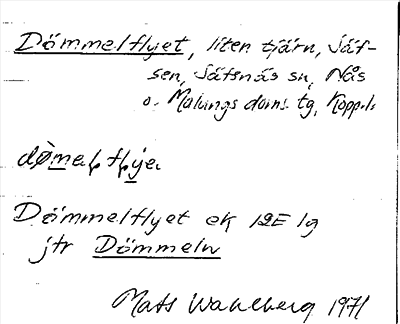 Dömmelflyet, liten tjärn, Säf-
sen, Säfsnäs sn, Nås
o. Malungs doms. tg, Koppbs
Dömmelflyet ek 12E 1g
jfr Dömmeln
Mats Wahlberg 1971